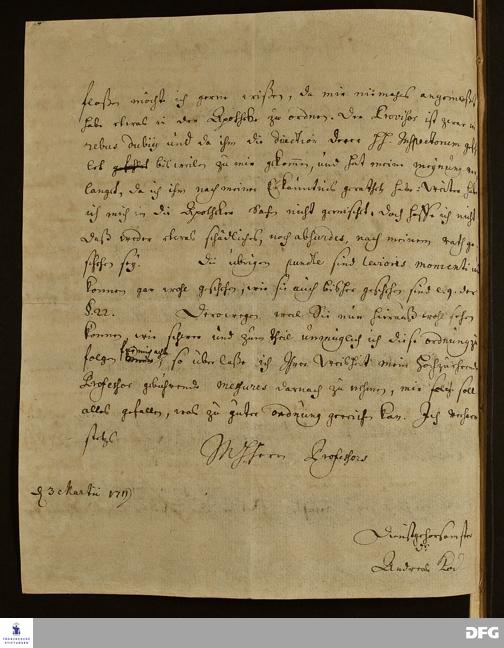 floßen möcht ich gerne wißen, da mir niemahls angemaßet
habe etwas in der Apotheke zu ordnen. Der Provisor ist zwar in
rebus dubiis und da ihm die direction derer HH. Inspectorum
bisweilen zu mir gekommen, und hat meine meynung ver
langet, da ich ihm nach meiner Erkäntnis gerathen habe: Weiter habe
ich mich in die Apotheker Sachen nicht gemischet, doch hoffe ich nicht
daß weder etwas schädliches, noch absurdes, nach meinem rath ge
schehen sey. Die übrigen puncte sind levioris momenti u
können gar wohl geschehen, wie sie auch bisher geschehen sind
§. 22. Derowegen weil Sie nun hierauß wohl sehen
können, wie schwer und zum theil unmüglich ich diese ordnung
folgen, so überlaße ich Ihrer Weisheit mein Hochzuehrender
Professor gebührende mesures darnach zu nehmen, mir soll
alles gefallen, was zu guter ordnung gereichen kan. Ich verharre
stets
MHHerrn Professors
d. 3 Martii
Dienstgehorsamster
Andreas
FRANCKESCHE STIFTUNGEN
DFG